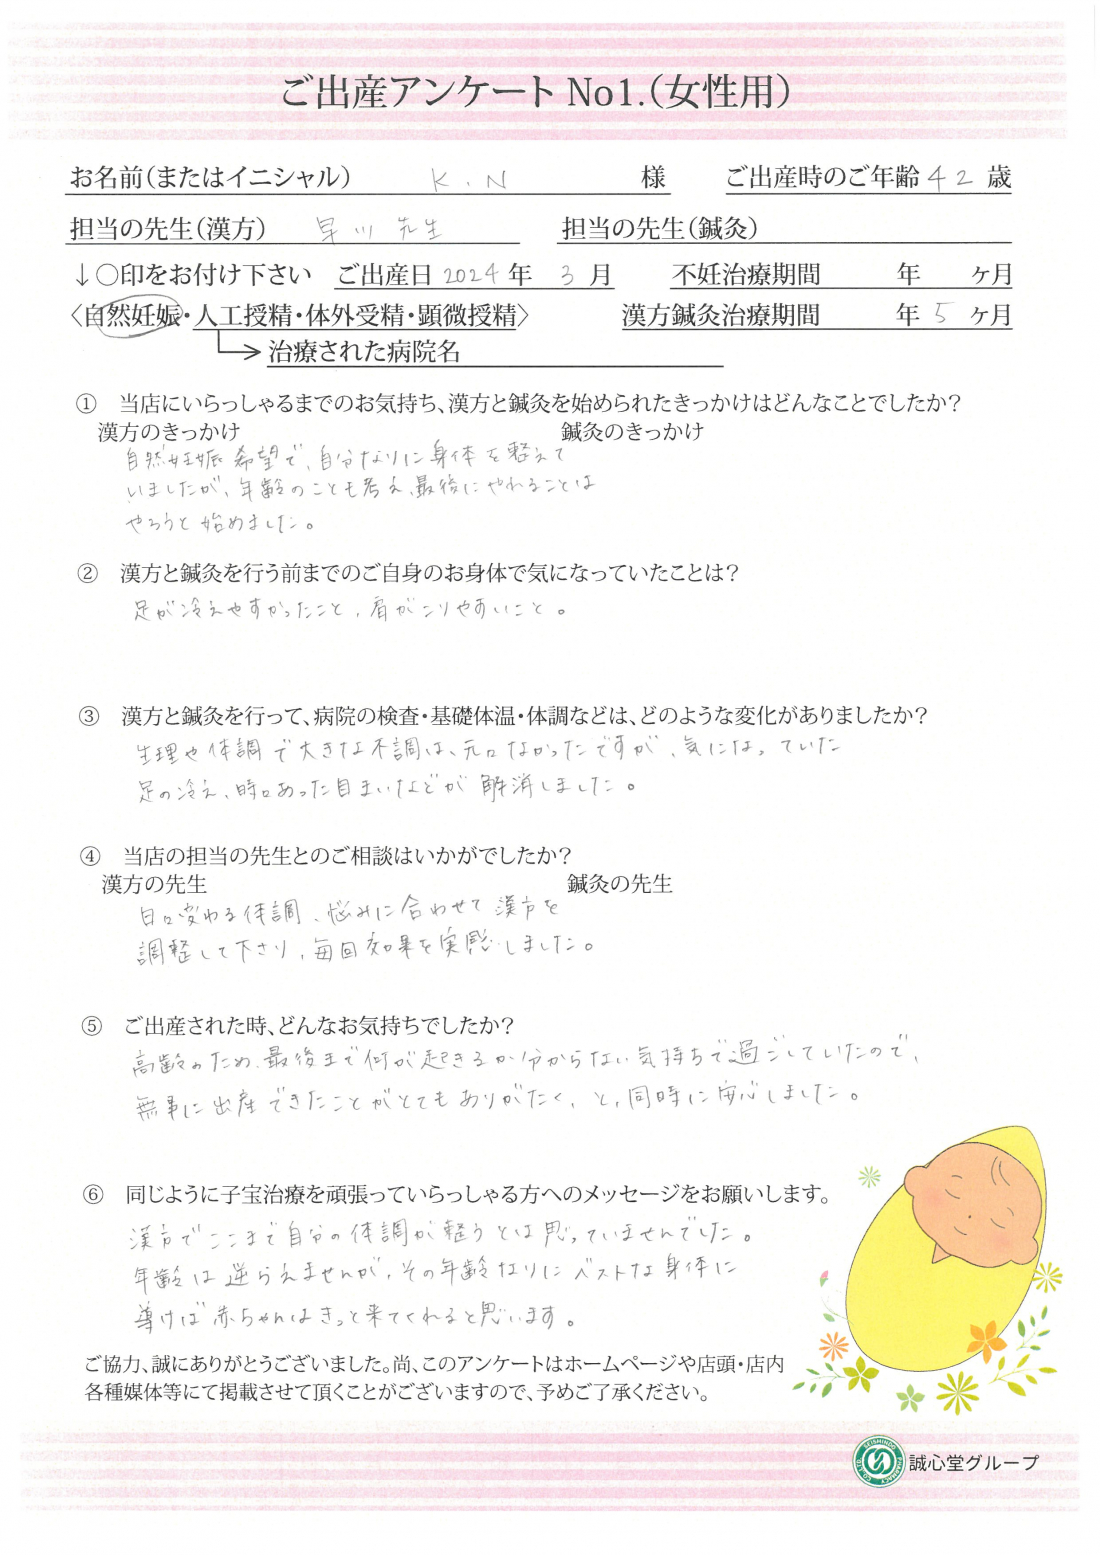 ご出産アンケート No1.(女性用)
お名前(またはイニシャル) K.N 様 ご出産時のご年齢 42 歳
担当の先生(漢方) 早川 先生 担当の先生(鍼灸)
↓○印をお付け下さい ご出産日 2024 年 3 月 不妊治療期間 年 ヶ月
〈自然妊娠・人工授精・体外受精・顕微授精〉 漢方鍼灸治療期間 年 5 ヶ月
治療された病院名
① 当店にいらっしゃるまでのお気持ち、漢方と鍼灸を始められたきっかけはどんなことでしたか?
漢方のきっかけ 鍼灸のきっかけ
自然妊娠希望で、自分なりに身体を整えて
いましたが、年齢のことも考え、最後にやれることは
やろうと始めました。
② 漢方と鍼灸を行う前までのご自身のお身体で気になっていたことは?
足が冷えやすかったこと、肩がこりやすいこと。
③ 漢方と鍼灸を行って、病院の検査・基礎体温・体調などは、どのような変化がありましたか?
生理や体調で大きな不調は、元々なかったですが、気になっていた
足の冷え、時々あった目まいなどが解消しました。
④ 当店の担当の先生とのご相談はいかがでしたか?
漢方の先生 鍼灸の先生
日々変わる体調、悩みに合わせて漢方を
調整して下さり、毎回効果を実感しました。
⑤ ご出産された時、どんなお気持ちでしたか?
高齢のため、最後まで何が起きるか分からない気持ちで過ごしていたので、
無事に出産できたことがとてもありがたく、と、同時に安心しました。
⑥ 同じように子宝治療を頑張っていらっしゃる方へのメッセージをお願いします。
漢方でここまで自分の体調が整うとは思っていませんでした。
年齢は逆らえませんが、その年齢なりにベストな身体に
導けば赤ちゃんはきっと来てくれると思います。
ご協力、誠にありがとうございました。尚、このアンケートはホームページや店頭・店内
各種媒体等にて掲載させて頂くことがございますので、予めご了承ください。
SEISHINDO PHARMACY CO.,LTD.
誠心堂グループ